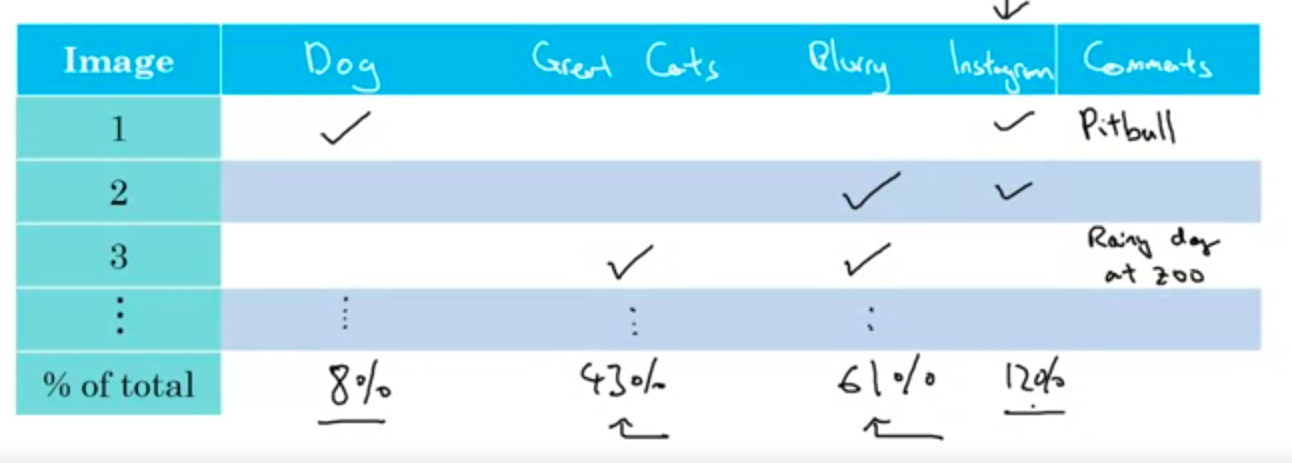 Image Dog Great Cats Blurry Instagram Comments
1 ✓ ✓ Pitbull
2 ✓ ✓
3 ✓ ✓ Rainy day at zoo
⋮ ⋮ ⋮ ⋮
% of total 8% 43% 61% 12%